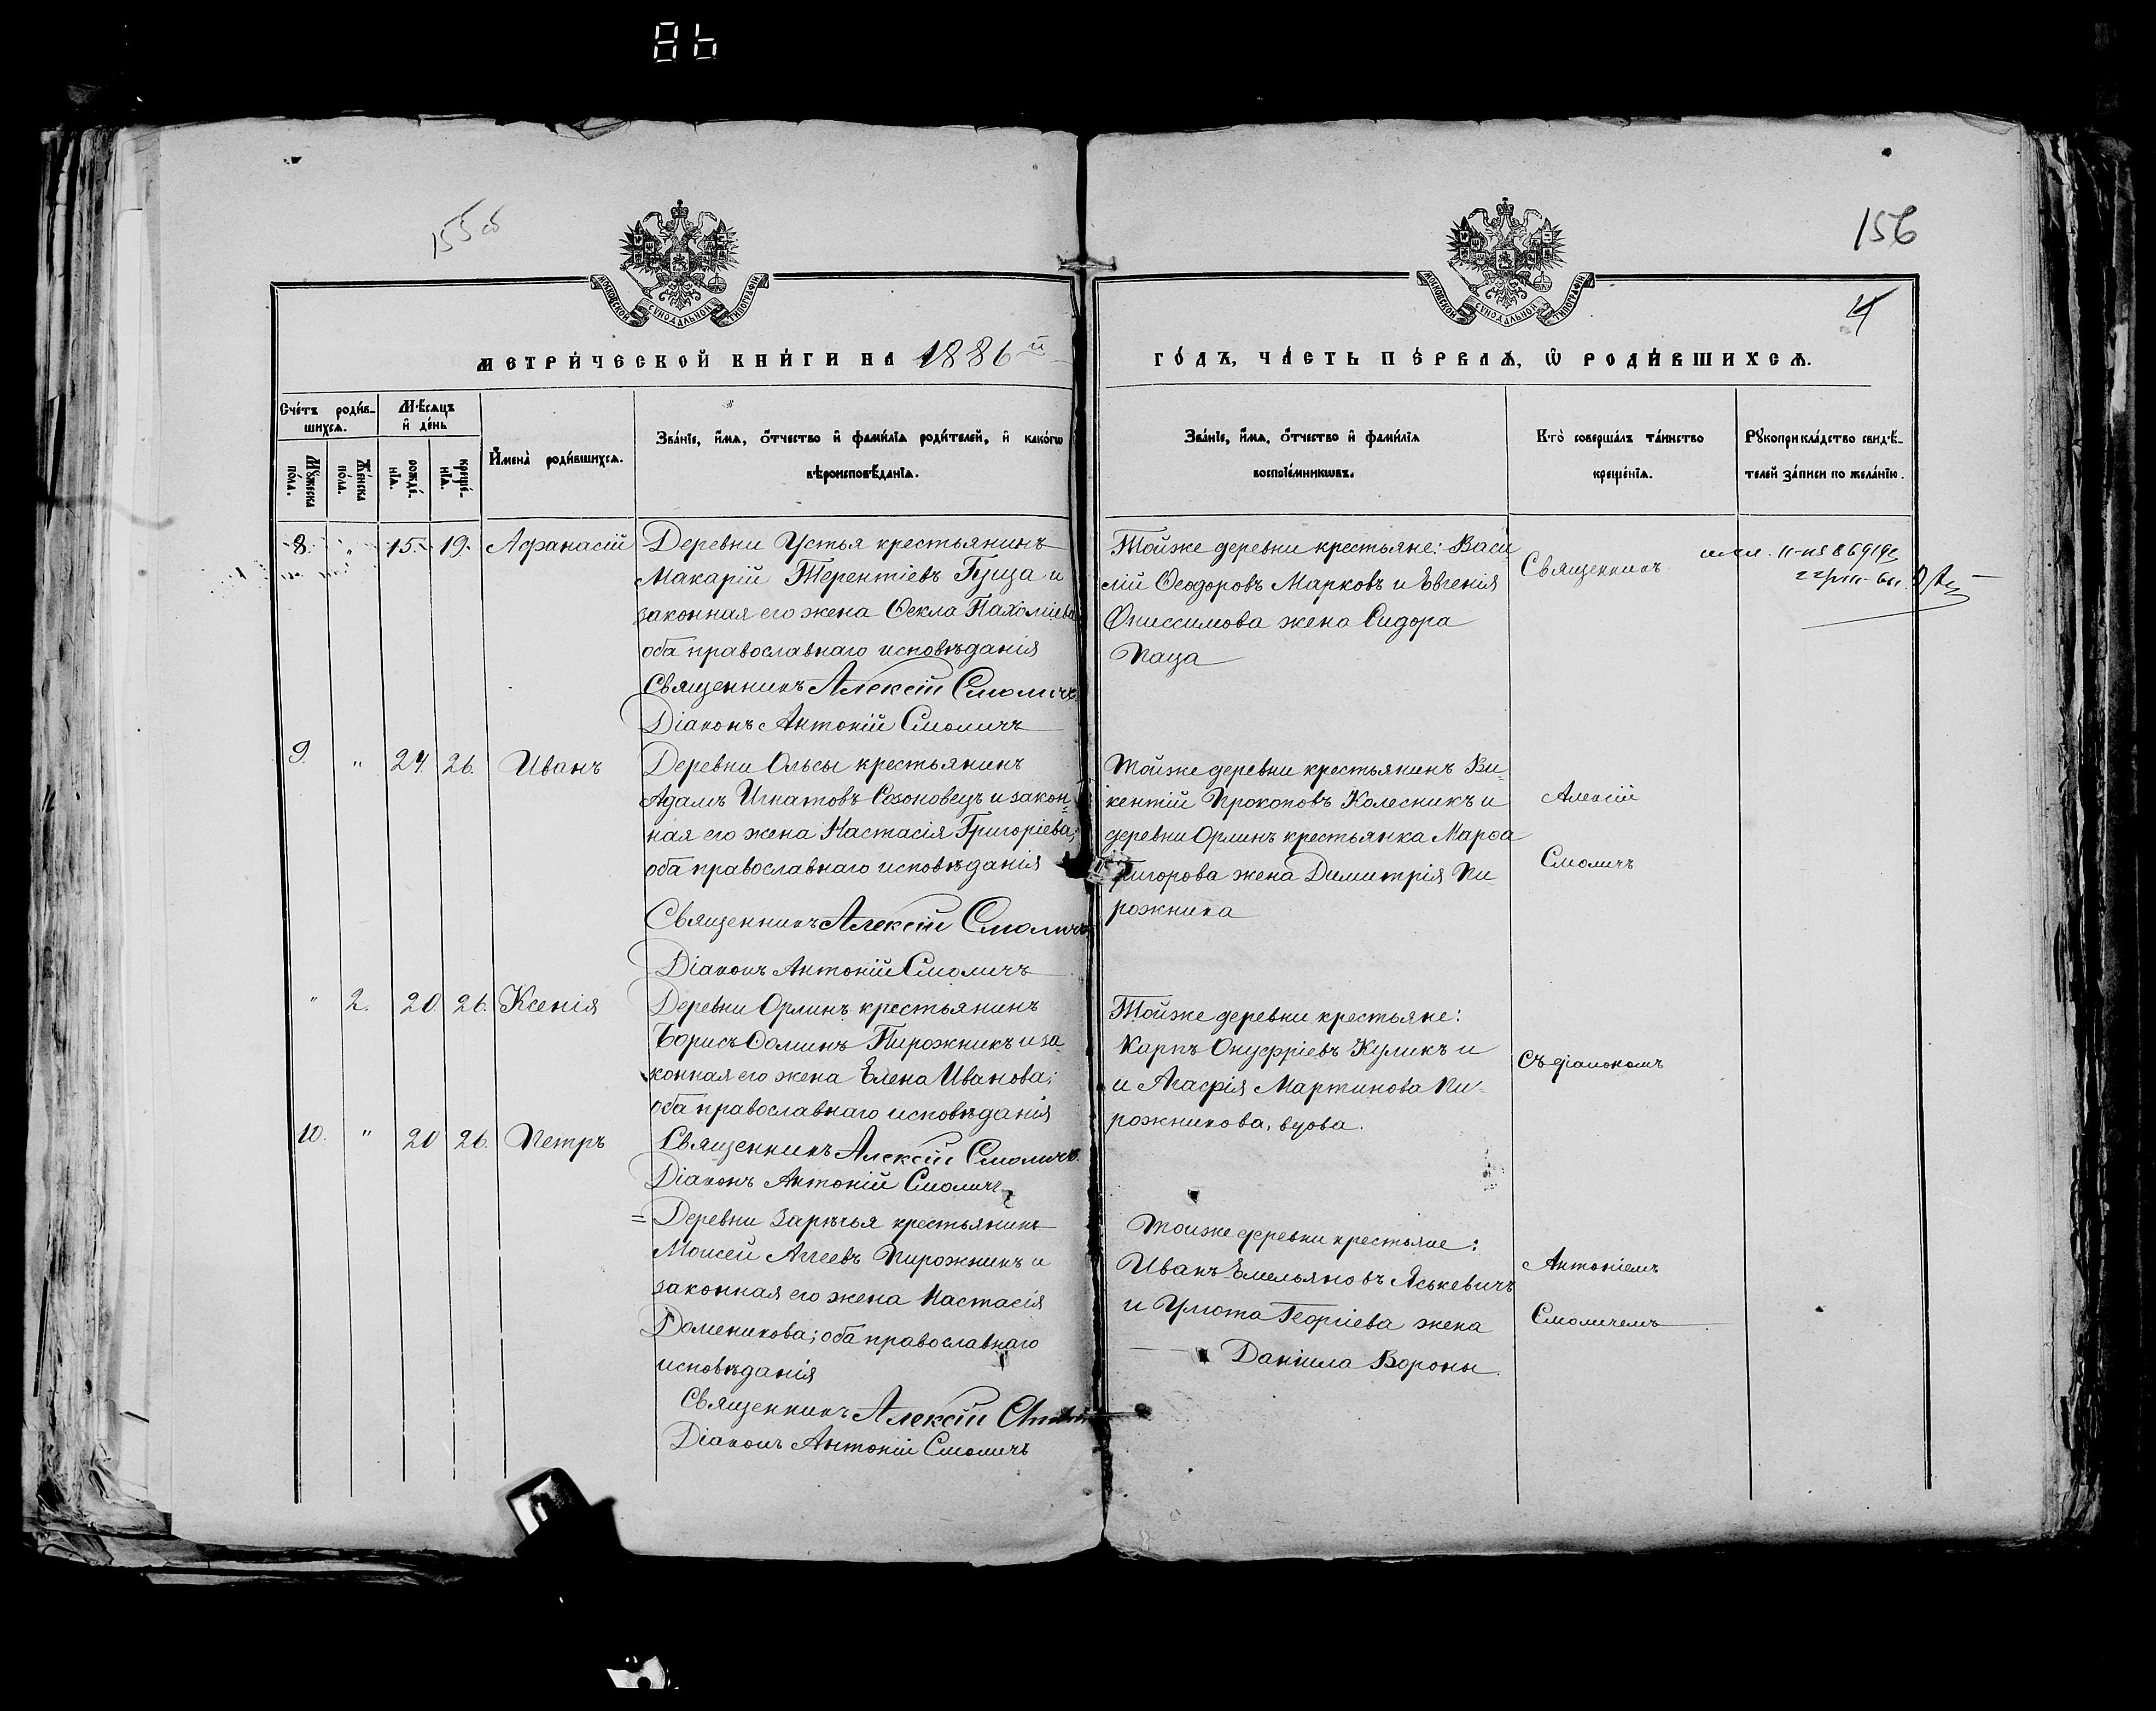 86
155об
156
4
МОСКОВСКОЙ СѴНОДАЛЬНОЙ ТИПОГРАФІИ
МОСКОВСКОЙ СѴНОДАЛЬНОЙ ТИПОГРАФІИ
МЕТРИ́ЧЕСКОЙ КНИ́ГИ НА 1886й
ГО́ДЪ, ЧА́СТЬ ПЕ́РВАѦ, Ѽ РОДИ́ВШИХСѦ.
Сче́тъ роди́в-
шихсѧ.
Мѣ́сѧцъ
и҆ де́нь
Мꙋ́жеска
по́ла.
Же́нска
по́ла.
рожде́-
нїѧ.
креще́-
нїѧ.
И҆мена̀ роди́вшихсѧ.
Зва́нїе, и҆́мѧ, ѻ҆́тчество и҆ фами́лїѧ роди́телей, и҆ како́гѡ
вѣроисповѣ́данїѧ.
Зва́нїе, и҆́мѧ, ѻ҆́тчество и҆ фами́лїѧ
воспрїе́мникѡвъ.
Кто̀ соверша́лъ та́инство
креще́нїѧ.
Рꙋкоприкла́дство свидѣ́-
телей за́писи по жела́нїю.
8. " 15. 19. Афанасій
Деревни Устья крестьянинъ
Макарій Терентіевъ Гуща и
законная его жена Ѳекла Пахоміева
оба православнаго исповѣданія
Священникъ Алексій Смоличъ
Діаконъ Антоній Смоличъ
Тойже деревни крестьяне: Васи
лій Ѳеодоровъ Марковъ и Евгенія
Ониссимова жена Сидора
Паца
Священникъ
9. " 24. 26. Иванъ
Деревни Ольсы крестьянинъ
Адамъ Игнатовъ Созоновецъ и закон-
ная его жена Настасія Григоріева;
оба православнаго исповѣданія
Священникъ Алексій Смоличъ
Діаконъ Антоній Смоличъ
Тойже деревни крестьянинъ Ви-
кентій Прокоповъ Колесникъ и
деревни Орлинъ крестьянка Марѳа
Григорова жена Димитрія Пи
рожника
Алексій
Смоличъ
" 2. 20. 26. Ксенія
Деревни Орлинъ крестьянинъ
Борисъ Ѳоминъ Пирожникъ и за
конная его жена Елена Иванова;
оба православнаго исповѣданія
Священникъ Алексій Смоличъ.
Діаконъ Антоній Смоличъ
Тойже деревни крестьяне:
Карпъ Онуфріевъ Куликъ и
и Агафія Мартинова Пи-
рожникова, вдова.
Съ діакономъ
10. " 20 26. Петръ
= Деревни Зарѣчья крестьянинъ
Моисей Агеевъ Пирожникъ и
законная его жена Настасія
Доменикова; оба православнаго
исповѣданія
Священникъ Алексій
Діаконъ Антоній Смоличъ
Тойже деревни крестьяне:
Иванъ Емельяновъ Яськевичъ
и Улюта Георгіева жена
Даніила Вороны.
Антоніемъ
Смоличемъ